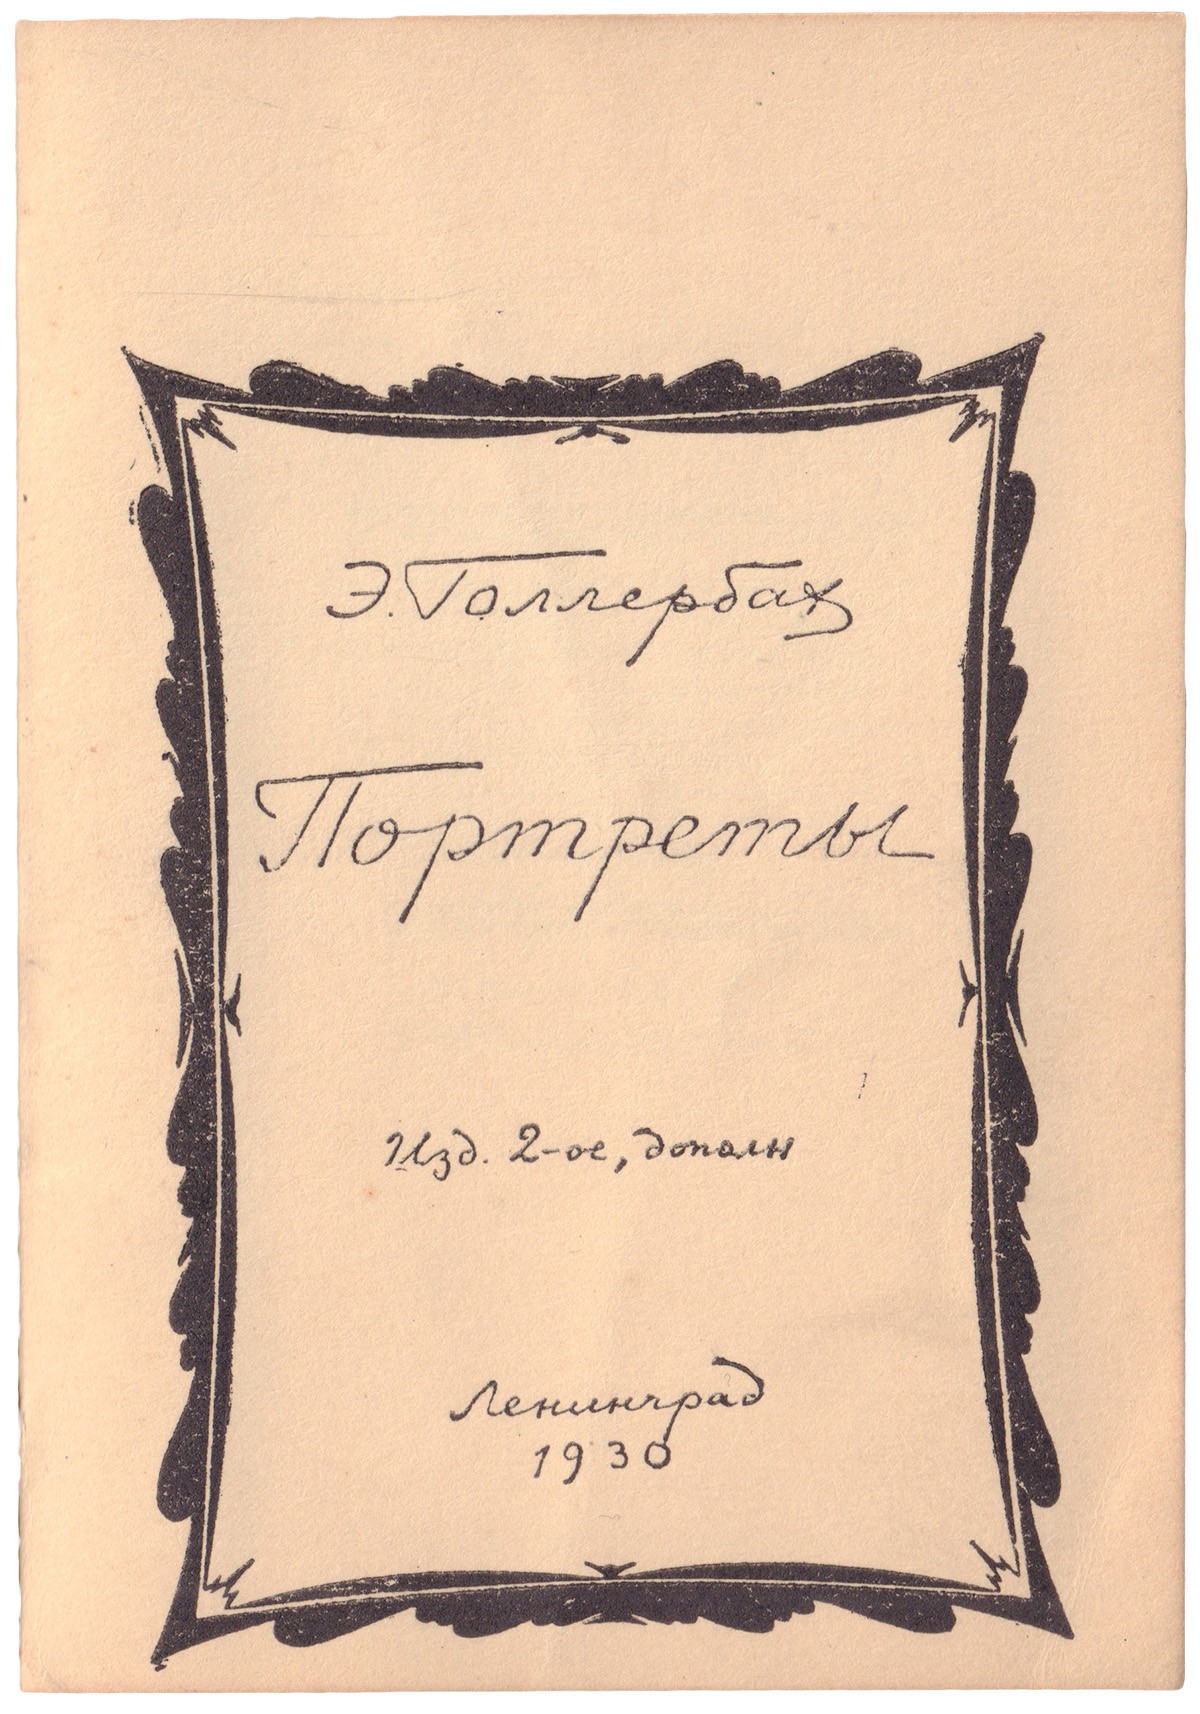 Э. Голлербах
Портреты
Изд. 2-ое, дополн
Ленинград
1930